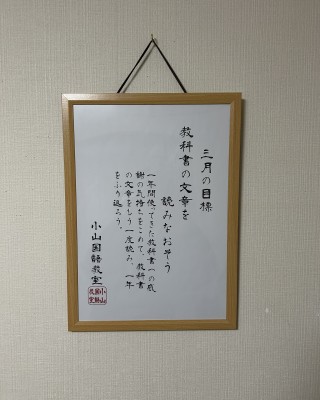 三月の目標
教科書の文章を
読みなおそう
一年間使ってきた教科書への感
謝の気持ちをこめて、教科書
の文章をもう一度読み、一年
をふり返ろう。
小山国語教室
小山
国語
教室